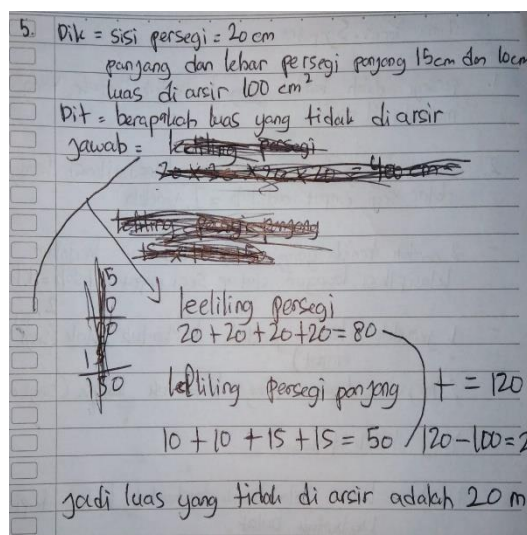 5. Dik = sisi persegi = 20 cm
panjang dan lebar persegi panjang 15cm dan 10cm
luas di arsir 100 cm²
Dit = berapakah luas yang tidak di arsir
Jawab = keliling persegi
= 400 cm
keliling persegi panjang
15
10
00
15
150
keeliling persegi
20 + 20 + 20 + 20 = 80
keliling persegi panjang + = 120
10 + 10 + 15 + 15 = 50 120 - 100 = 2
Jadi luas yang tidak di arsir adalah 20 m